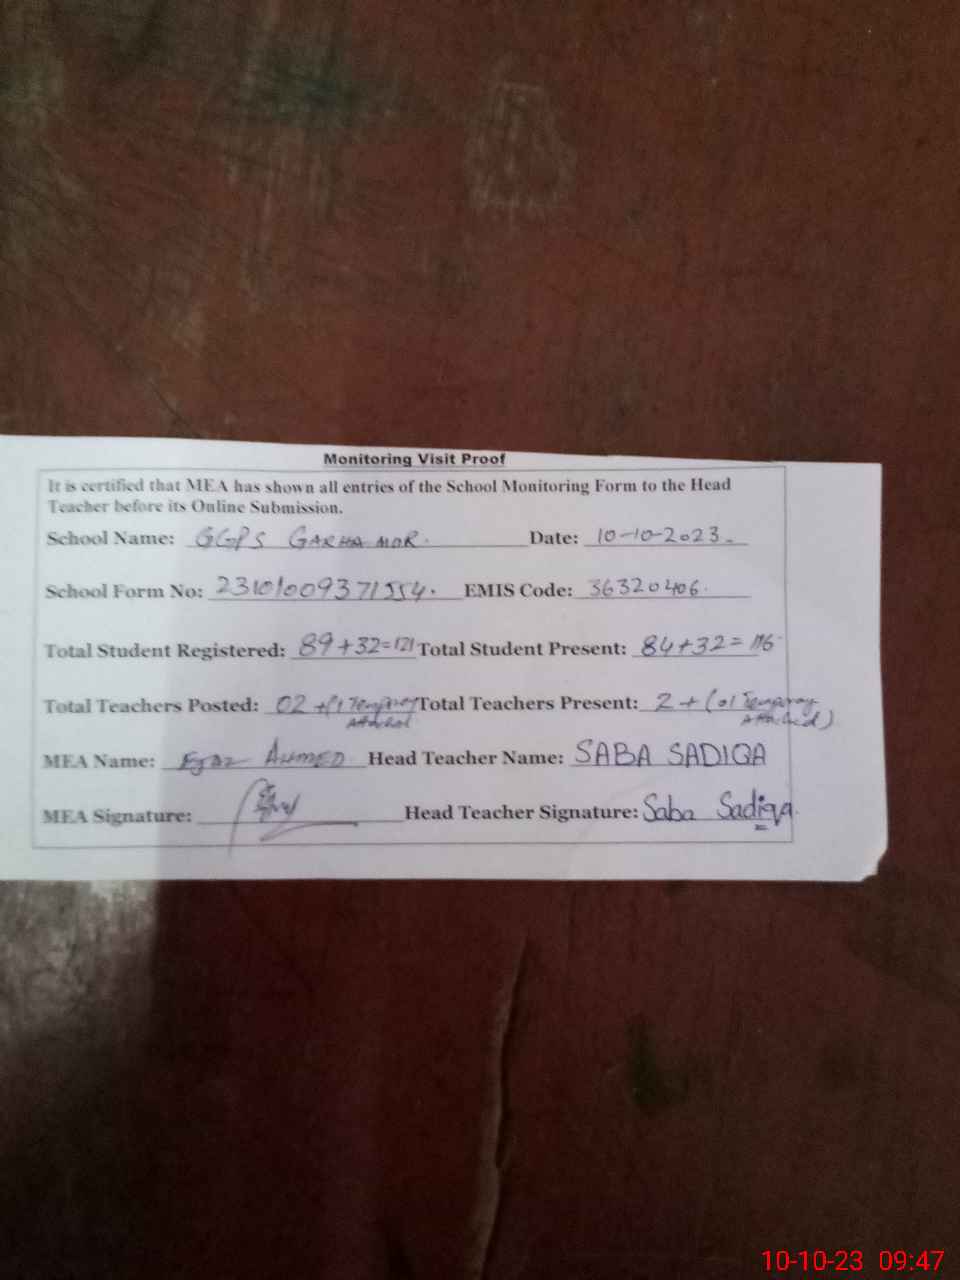 Monitoring Visit Proof
It is certified that MEA has shown all entries of the School Monitoring Form to the Head
Teacher before its Online Submission.
School Name: GGPS GARHA MOR. Date: 10-10-2023.
School Form No: EMIS Code: 36320406.
Total Student Registered: 89+32=121 Total Student Present: 84+32=116
Total Teachers Posted: 02 +(1 Temporary Total Teachers Present: 2 + (01 Temporary
Attached Attached)
MEA Name: Ejaz AHMED Head Teacher Name: SABA SADIQA
MEA Signature: Head Teacher Signature: Saba Sadiqa.
10-10-23 09:47